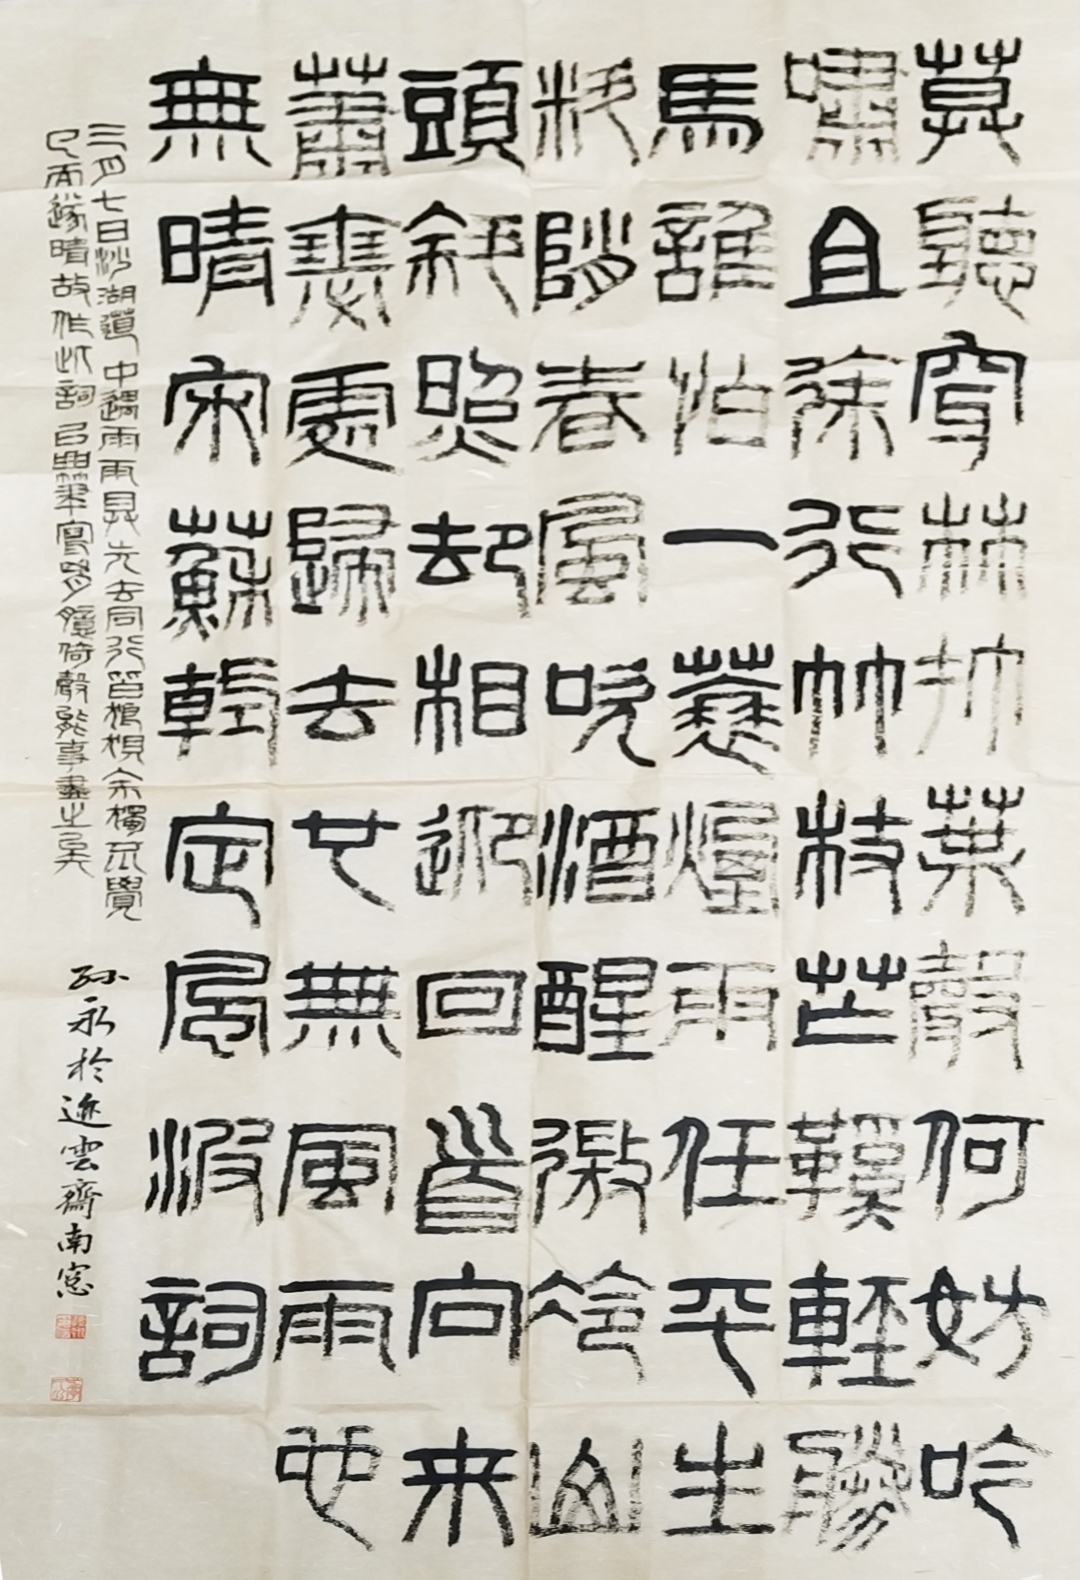 莫聽穿林打葉聲何妨吟
嘯且徐行竹枝芒鞵輕勝
馬誰怕一蓑煙雨任平生
料陗春風吹酒醒微冷山
頭斜照却相迎回首向来
蕭瑟處歸去也無風雨也
無晴宋蘇軾定風波詞
三月七日沙湖道中遇雨雨具先去同行皆狼狽余獨不覺
已而遂晴故作此詞以曲筆寫胸臆倚聲能事盡之矣
孫永於近雲齋南窓